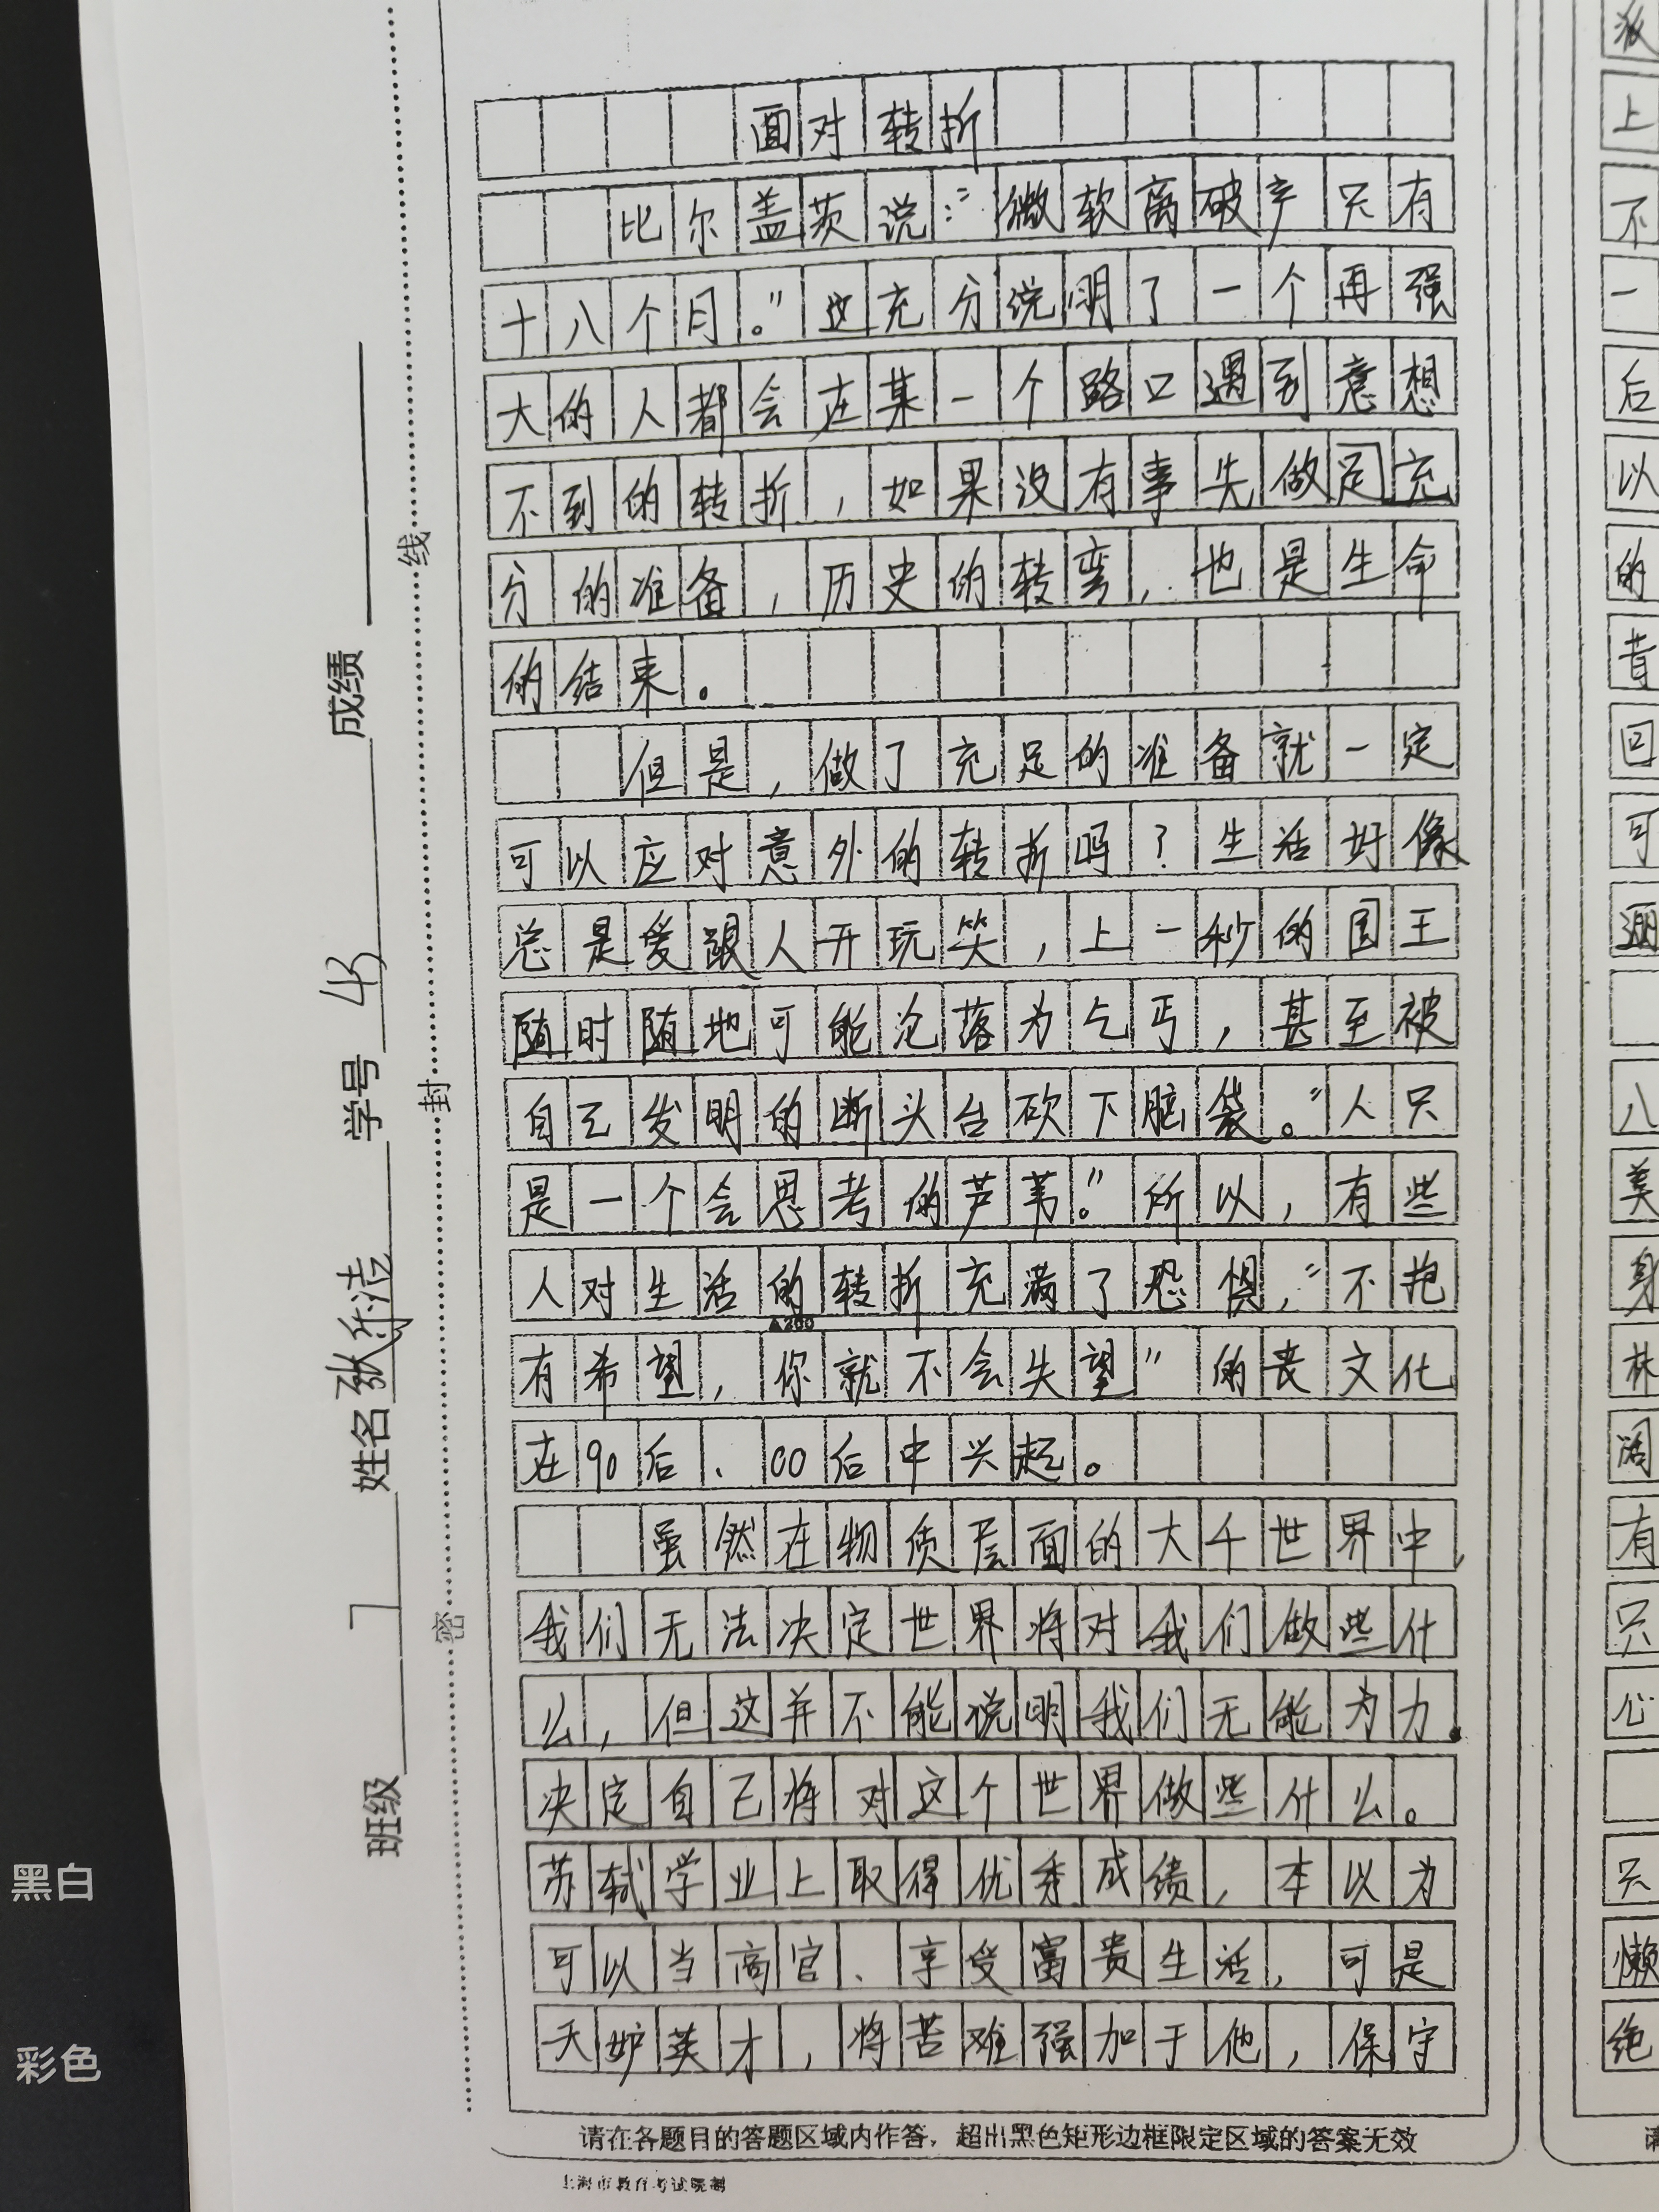 面对转折
比尔盖茨说："微软离破产只有
十八个月。"这充分说明了一个再强
大的人都会在某一个路口遇到意想
不到的转折，如果没有事先做足充
分的准备，历史的转弯，也是生命
的结束。
但是，做了充足的准备就一定
可以应对意外的转折吗？生活好像
总是爱跟人开玩笑，上一秒的国王
随时随地可能沦落为乞丐，甚至被
自己发明的断头台砍下脑袋。"人只
是一个会思考的芦苇。"所以，有些
人对生活的转折充满了恐惧，"不抱
▲200
有希望，你就不会失望"的丧文化
在90后、00后中兴起。
虽然在物质层面的大千世界中，
我们无法决定世界将对我们做些什
么，但这并不能说明我们无能为力。
决定自己将对这个世界做些什么。
苏轼学业上取得优秀成绩，本以为
可以当高官、享受富贵生活，可是
天妒英才，将苦难强加于他，保守
请在各题目的答题区域内作答，超出黑色矩形边框限定区域的答案无效
上海市教育考试院制
班级 7 姓名 张 洁 学号 43 成绩
密 封 线
上
不
一
后
以
的
昔
回
可
八
美
身
林
阔
有
只
心
只
懒
绝
请
黑白
彩色